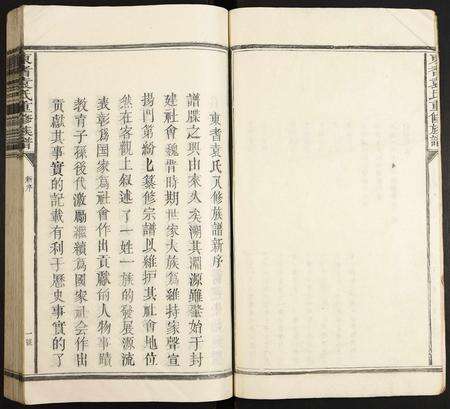 東耆袁氏八修族譜新序
譜牒之興由來久矣溯其淵源雖肇始于封
建社會魏晋時期世家大族為維持家聲宣
揚門第紛紛纂修宗譜以維护其社會地位
然在客觀上叙述了一姓一族的發展源流
表彰為國家為社會作出貢獻的人物事蹟
教育子孫後代激勵繼續為國家社会作出
貢獻其事實的記載有利于歷史事實的了
東耆袁氏重修族譜
新序
一
東耆袁氏重修族譜